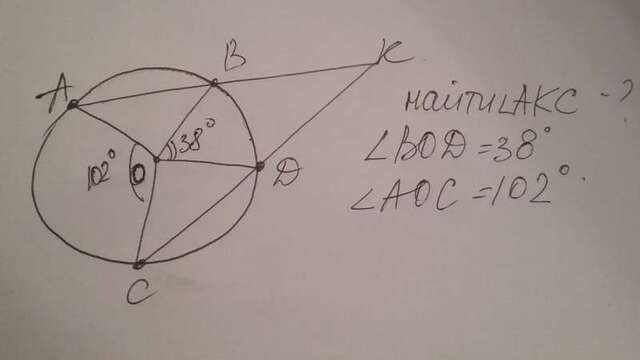 B
K
A
найти∠AKC -?
38°
∠BOD=38°
102°
O
D
∠AOC=102°.
C